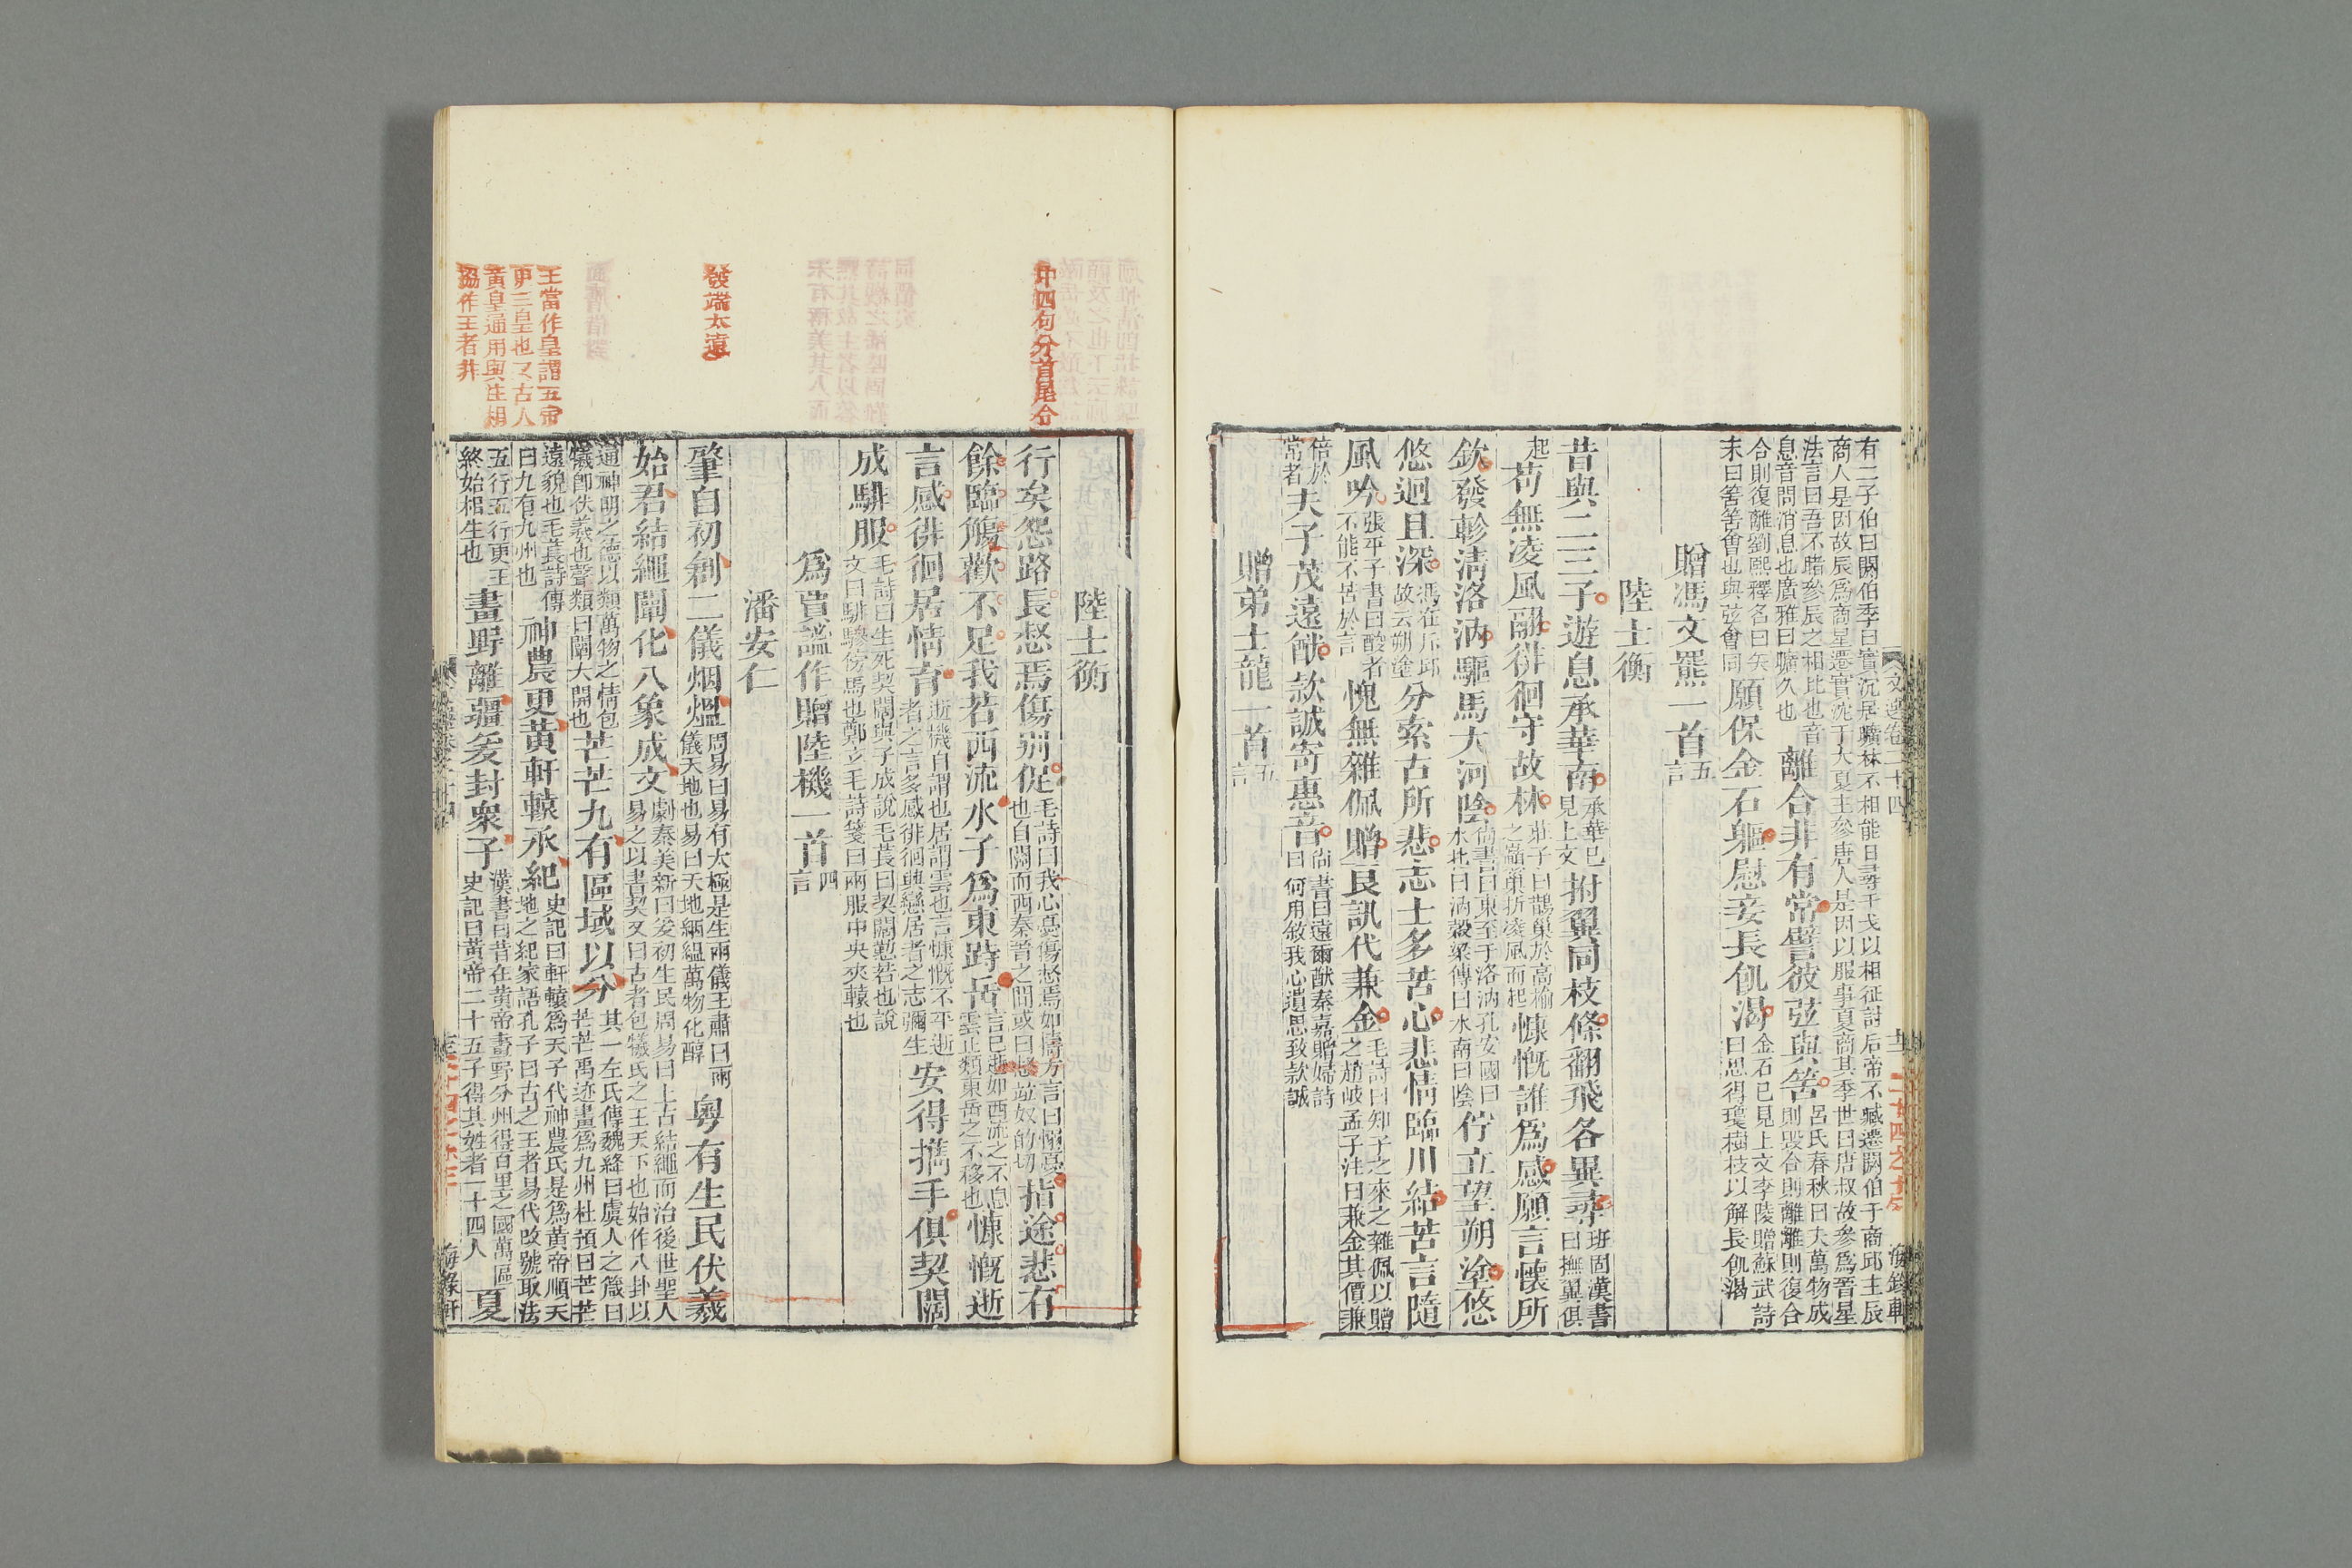 有二子伯曰閼伯季曰實沉居曠林不相能日尋干戈以相征討后帝不臧遷閼伯于商邱主辰
商人是因故辰爲商星遷實沈于大夏主參唐人是因以服事夏商其季世曰唐叔故參爲晉星
法言曰吾不睹參辰之相比也音
息音問消息也廣雅曰曠久也
離合非有常譬彼弦與筈
呂氏春秋曰夫萬物成
則毀合則離離則復合
合則復離劉熙釋名曰矢
末曰筈筈會也與弦會同
願保金石軀慰妾長飢渴
金石已見上文李陵贈蘇武詩
曰思得瓊樹枝以解長飢渴
贈馮文羆一首五言
陸士衡
昔與二三子遊息承華南
承華已
見上文
拊翼同枝條翻飛各異尋
班固漢書
曰撫翼俱
起
苟無淩風翮徘徊守故林
莊子曰鵲巢於高榆
之巔巢折淩風而起
慷慨誰爲感願言懷所
欽發軫淸洛汭驅馬大河陰
尚書曰東至于洛汭孔安國曰
水北曰汭糓梁傳曰水南曰陰
佇立望朔塗悠
悠迴且深
馮在斥邱
故云朔塗
分索古所悲志士多苦心悲情臨川結苦言隨
風吟
張平子書曰酸者
不能不苦於言
愧無雜佩贈良訊代兼金
毛詩曰知子之來之雜佩以贈
之趙岐孟子注曰兼金其價兼
倍於
常者
夫子茂遠猷款誠寄惠音
尚書曰遠爾猷秦嘉贈婦詩
曰何用敘我心遺思致款誠
贈弟士龍一首五言
陸士衡
行矣怨路長惄焉傷别促
毛詩曰我心憂傷惄焉如擣方言曰愵憂
也自關而西秦晉之間或曰惄竝奴的切
指途悲有
餘臨觴歡不足我若西流水子爲東跱岳
言已逝如西流之不息
雲止類東岳之不移也
慷慨逝
言感徘徊居情育
逝機自謂也居謂雲也言慷慨不平逝
者之言多感徘徊興戀居者之志彌生
安得攜手俱契闊
成騑服
毛詩曰生死契闊與子成說毛萇曰契闊懃苦也說
文曰騑驂傍馬也鄭立毛詩箋曰兩服中央夾轅也
爲賈謐作贈陸機一首四言
潘安仁
肇自初創二儀烟熅
周易曰易有太極是生兩儀王肅曰兩
儀天地也易曰天地絪縕萬物化醇
粤有生民伏羲
始君結繩闡化八象成文
劇秦美新曰爰初生民周易曰上古結繩而治後世聖人
易之以書契又曰古者包犧氏之王天下也始作八卦以
通神明之德以類萬物之情包
犧卽伏羲也聲類曰闡大開也
芒芒九有區域以分
其一左氏傳魏絳曰虞人之箴曰
芒芒禹迹畫爲九州杜預曰芒芒
遠貌也毛萇詩傳
曰九有九州也
神農更黄軒轅承紀
史記曰軒轅爲天子代神農氏是爲黄帝順天
地之紀家語孔子曰古之王者易代改號取法
五行五行更王
終始相生也
畫野離疆爰封衆子
漢書曰昔在黄帝畫野分州得百里之國萬區
史記曰黄帝二十五子得其姓者一十四人
夏
中四句分首尾合
發端太遠
王當作皇謂五帝
更三皇也又古人
黄皇通用與生相
協作王者非
文選卷二十四
海錄軒